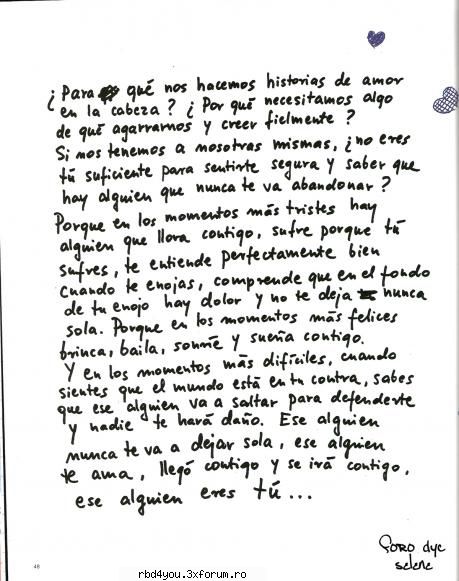 ¿Para qué nos hacemos historias de amor
en la cabeza? ¿Por qué necesitamos algo
de qué agarrarnos y creer fielmente?
Si nos tenemos a nosotras mismas, ¿no eres
tú suficiente para sentirte segura y saber que
hay alguien que nunca te va abandonar?
Porque en los momentos más tristes hay
alguien que llora contigo, sufre porque tú
sufres, te entiende perfectamente bien
cuando te enojas, comprende que en el fondo
de tu enojo hay dolor y no te deja nunca
sola. Porque en los momentos más felices
brinca, baila, sonríe y sueña contigo.
Y en los momentos más difíciles, cuando
sientes que el mundo está en tu contra, sabes
que ese alguien va a saltar para defenderte
y nadie te hará daño. Ese alguien
nunca te va a dejar sola, ese alguien
te ama, llegó contigo y se irá contigo,
ese alguien eres tú...
FORO dyc
selene
48
rbd4you.3xforum.ro